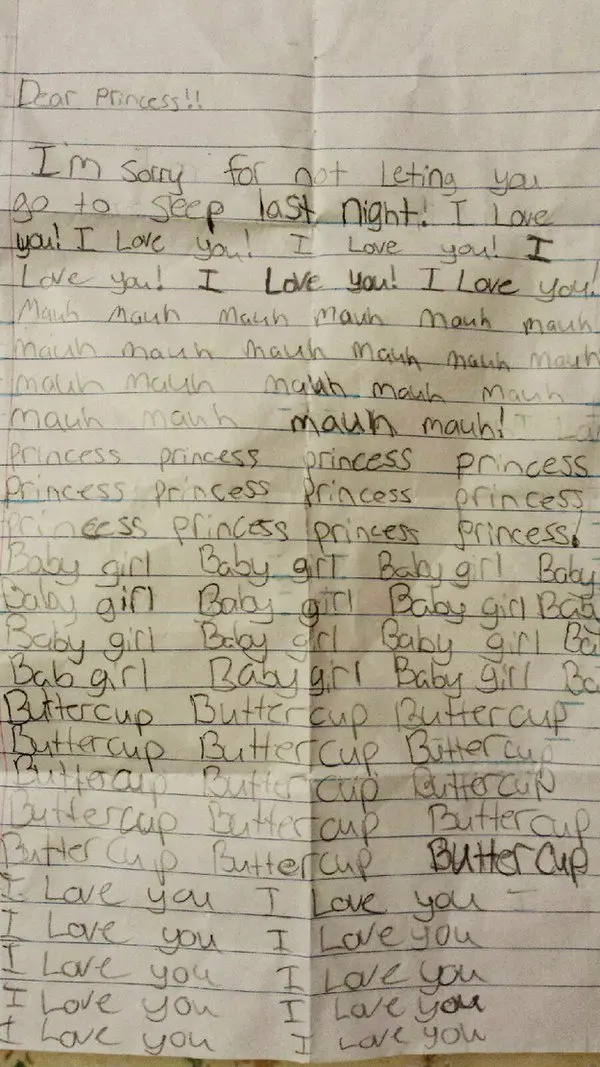 Dear Princess!!
I'm sorry for not leting you
go to sleep last night! I Love
you! I Love you! I Love you! I
Love you! I Love you! I Love you!
Mauh Mauh mauh mauh mauh mauh
mauh mauh mauh mauh mauh mauh
mauh mauh mauh mauh mauh
mauh mauh mauh mauh!
princess princess princess princess
princess princess princess princess
princess princess princess princess!
Baby girl Baby girl Baby girl Baby
Baby girl Baby girl Baby girl Bab
Baby girl Baby girl Baby girl Ba
Bab girl Baby girl Baby girl Ba
Buttercup Buttercup Buttercup
Buttercup Buttercup Buttercup
Buttercup Buttercup Buttercup
Buttercup Buttercup Buttercup
Buttercup Buttercup Buttercup
I Love you I Love you
I Love you I Love you
I Love you I Love you
I Love you I Love you
I Love you I Love you